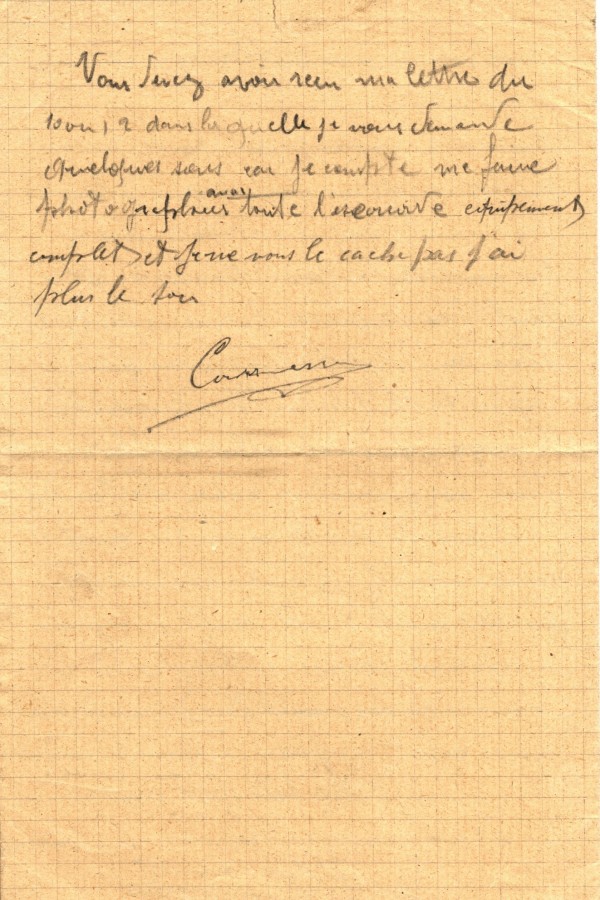 Vous devez avoir recu ma lettre du
10 ou 12 dans laquelle je vous demande
quelques sous car je compte me faire
photographier avec toute l'escouade equipement
complet et je ne vous le cache pas j'ai
plus le sou